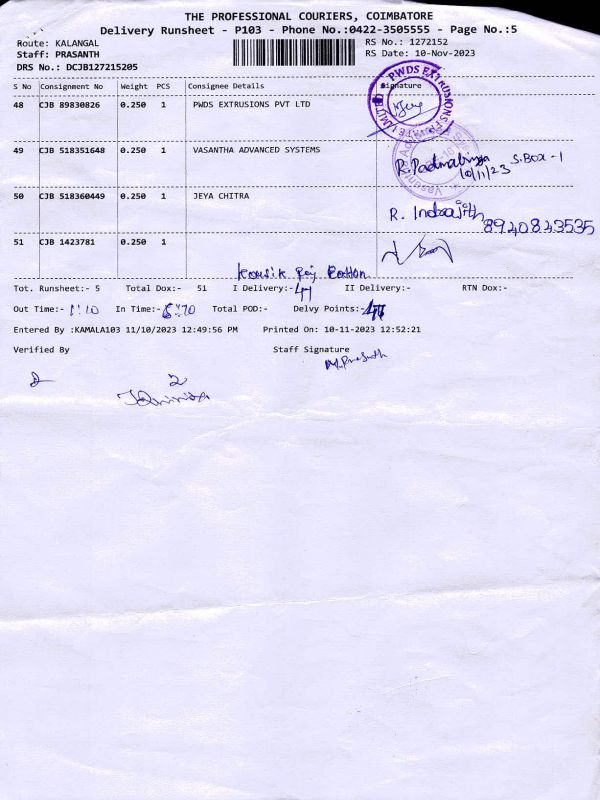 THE PROFESSIONAL COURIERS, COIMBATORE
Delivery Runsheet - P103 - Phone No.:0422-3505555 - Page No.:5
Route: KALANGAL
RS No.: 1272152
Staff: PRASANTH
RS Date: 10-Nov-2023
DRS No.: DCJB127215205
S No Consignment No Weight PCS Consignee Details Signature
48 CJB 89830826 0.250 1 PWDS EXTRUSIONS PVT LTD
PWDS EXTRUSIONS PRIVATE LIMITED
49 CJB 518351648 0.250 1 VASANTHA ADVANCED SYSTEMS
10/11/23 S.Box - 1
50 CJB 518360449 0.250 1 JEYA CHITRA
R. Indrajith
8940843535
51 CJB 1423781 0.250 1
Tot. Runsheet:- 5 Total Dox:- 51 I Delivery:- II Delivery:- RTN Dox:-
Out Time:- 1:10 In Time:- Total POD:- Delvy Points:-
Entered By :KAMALA103 11/10/2023 12:49:56 PM Printed On: 10-11-2023 12:52:21
Verified By Staff Signature